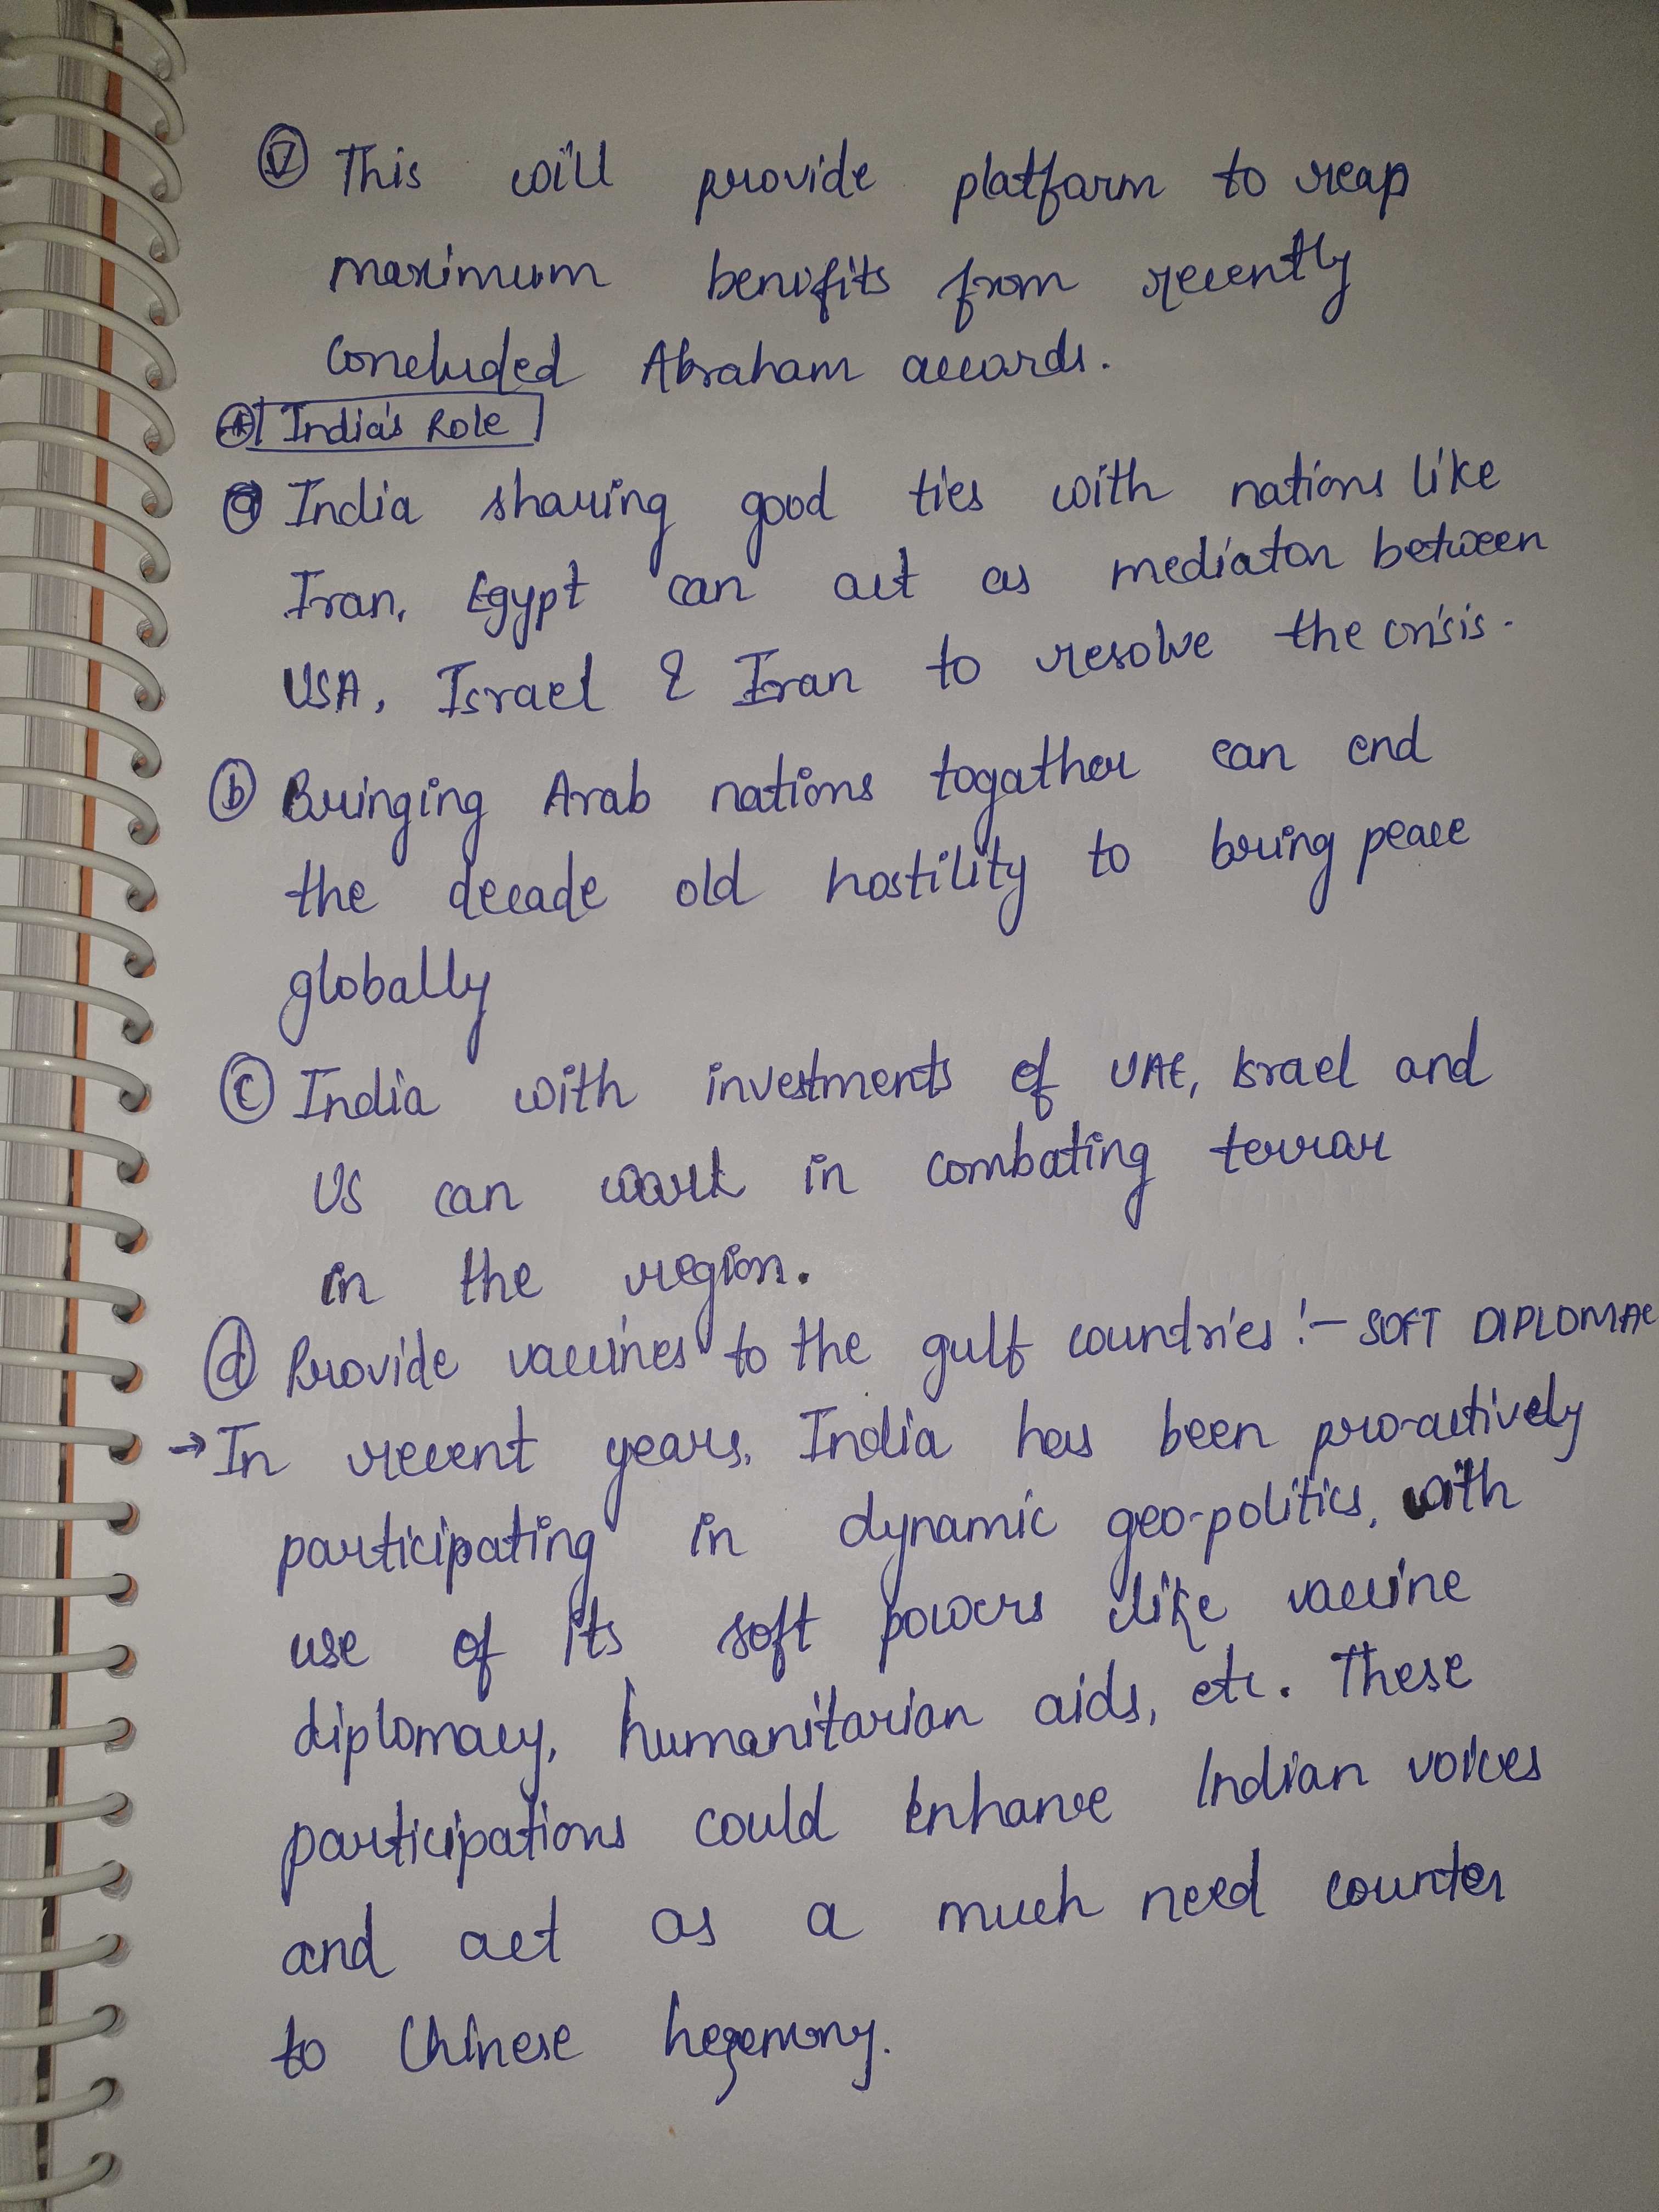 Ⓥ This will provide platform to reap
maximum benifits from recently
Concluded Abraham accords.
India's Role
ⓐ India sharing good ties with nations like
Iran, Egypt can act as mediator between
USA, Israel & Iran to resolve the crisis.
ⓑ Bringing Arab nations togather can end
the decade old hostility to bring peace
globally
ⓒ India with investments of UAE, Israel and
US can work in combating terror
in the region.
ⓓ Provide vaccines to the gulf countries :- SOFT DIPLOMAC
→ In recent years, India has been pro-actively
participating in dynamic geo-politics, with
use of its soft powers like vaccine
diplomacy, humanitarian aids, etc. These
participations could enhance Indian voices
and act as a much need counter
to Chinese hegemony.